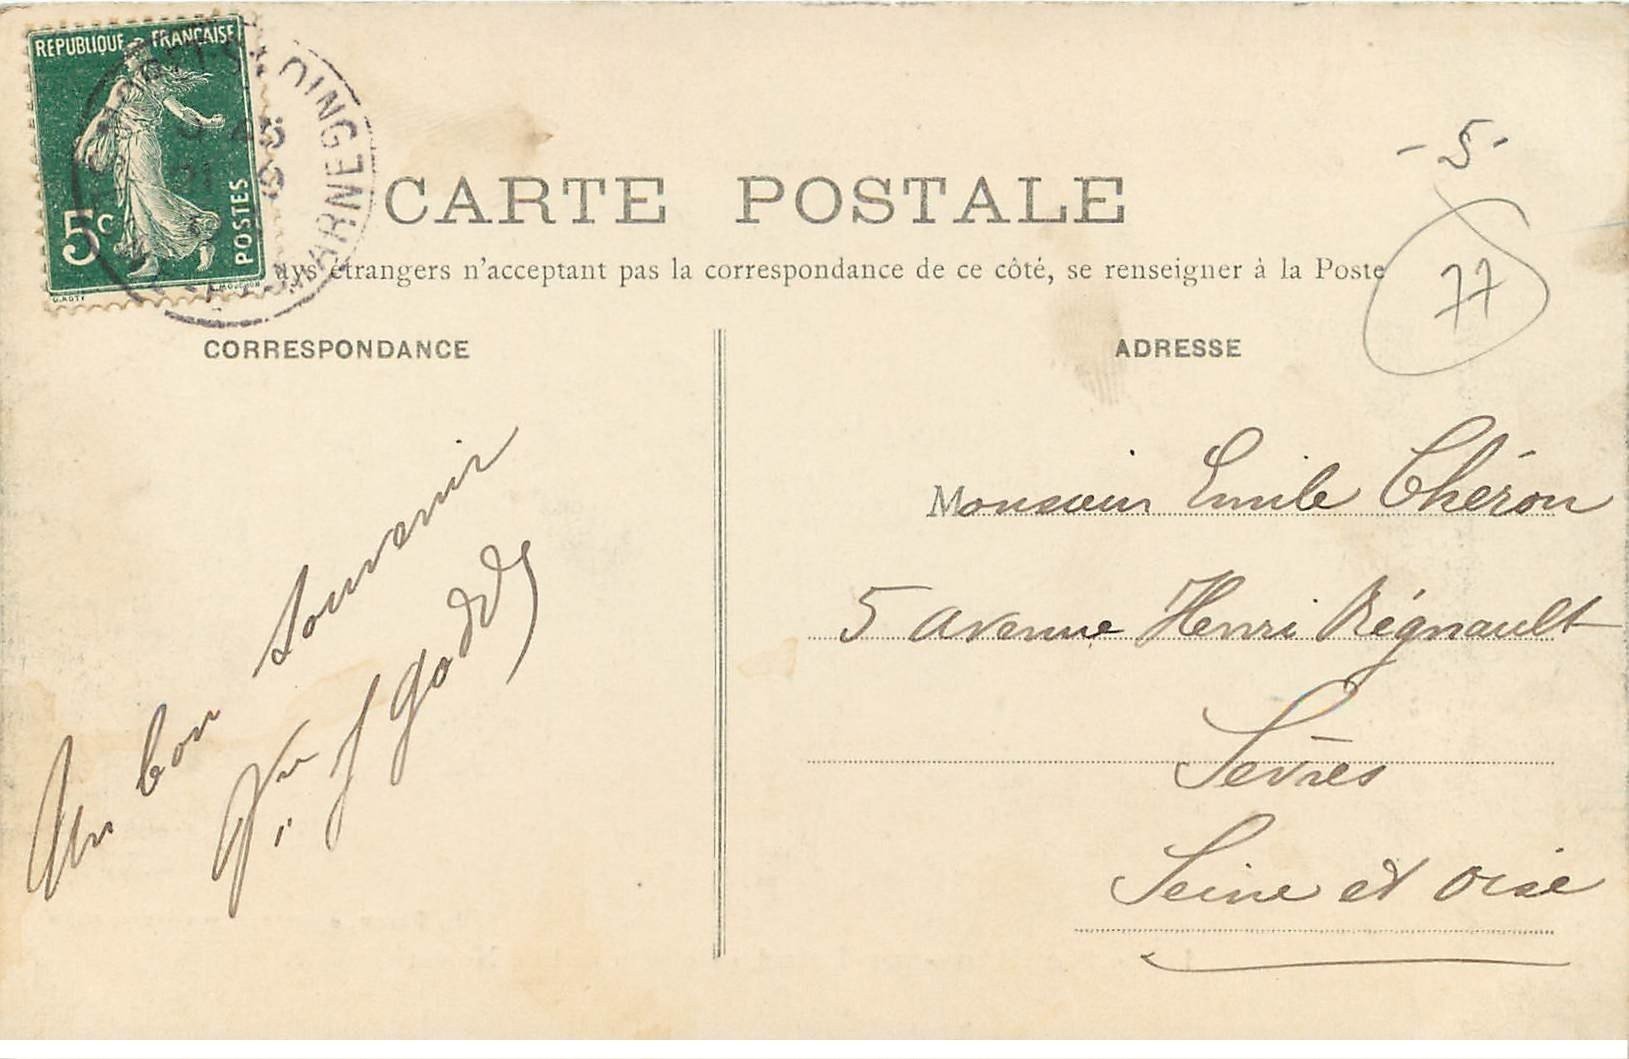 REPUBLIQUE FRANÇAISE
5c POSTES
CARTE POSTALE
ays étrangers n'acceptant pas la correspondance de ce côté, se renseigner à la Poste
-5-
77
CORRESPONDANCE
Un bon souvenir
ADRESSE
Monsieur Emile Chéron
5 avenue Henri Régnault
Sèvres
Seine et Oise